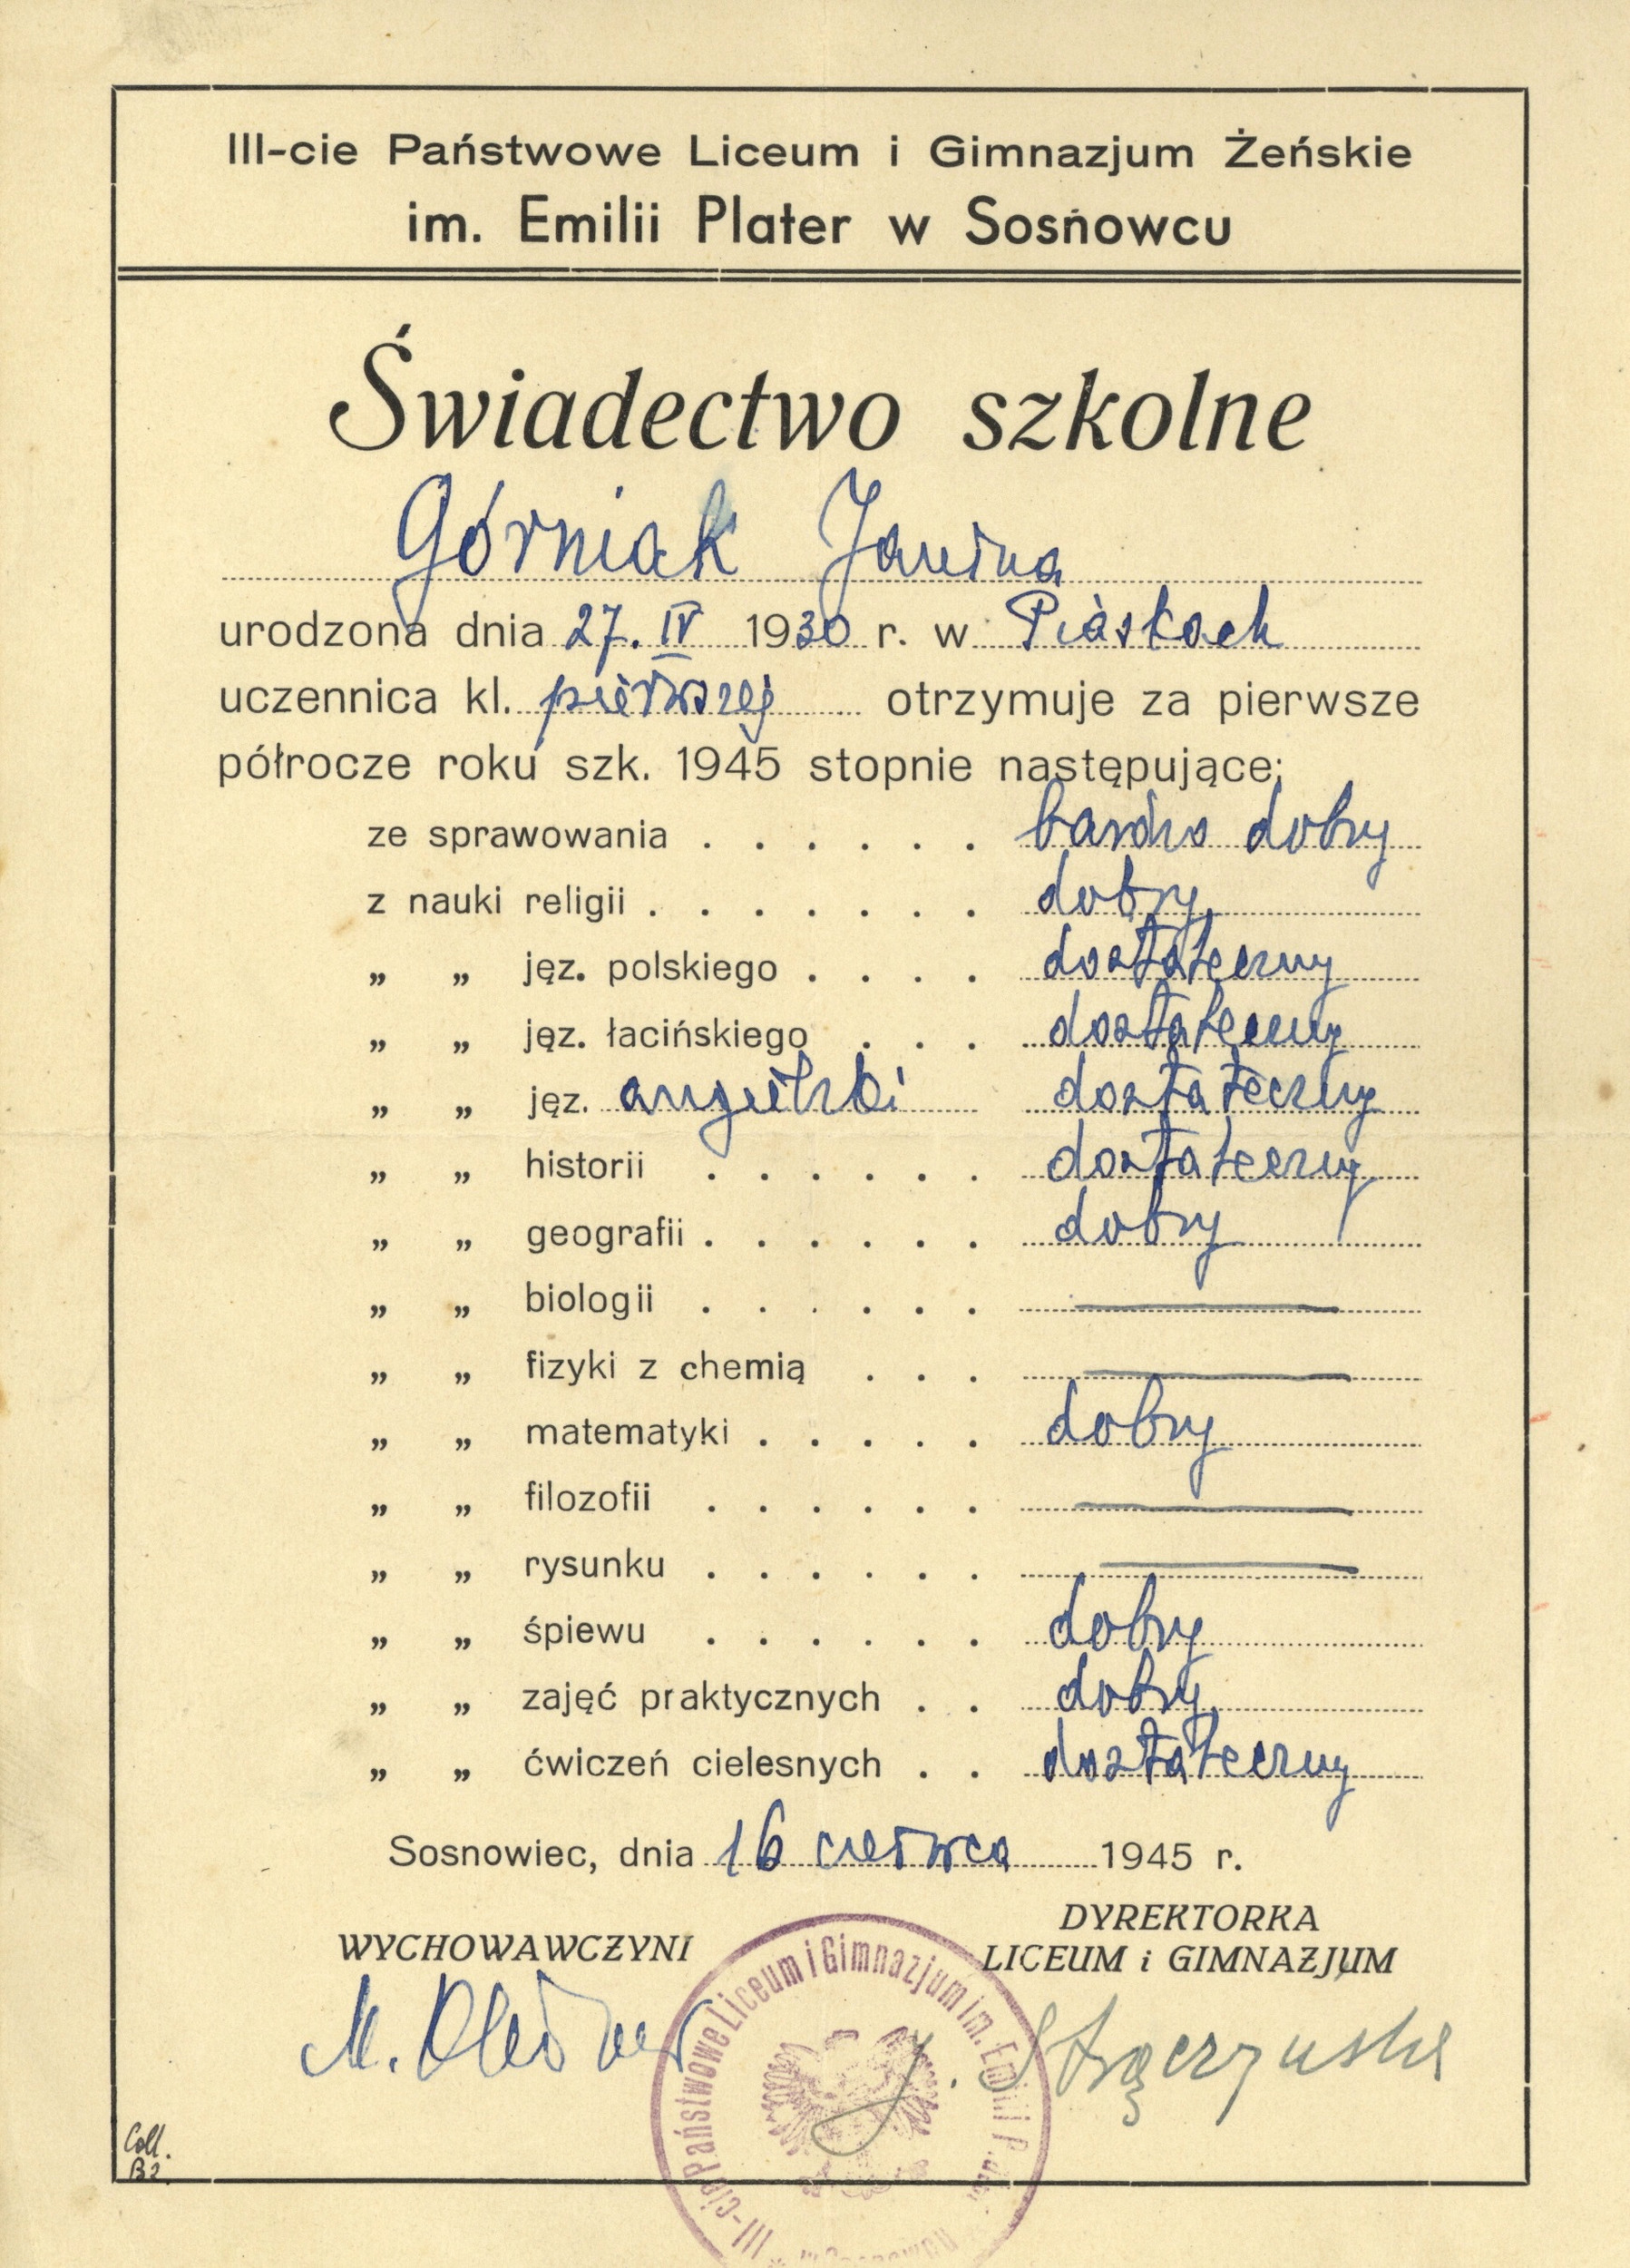 III-cie Państwowe Liceum i Gimnazjum Żeńskie
im. Emilii Plater w Sosnowcu
Świadectwo szkolne
Górniak Janina
urodzona dnia 27. IV 1930 r. w Piaskach
uczennica kl. pierwszej otrzymuje za pierwsze
półrocze roku szk. 1945 stopnie następujące:
ze sprawowania . . . . . . bardzo dobry
z nauki religii . . . . . . . dobry
„ „ jęz. polskiego . . . . dostateczny
„ „ jęz. łacińskiego . . . dostateczny
„ „ jęz. angielski dostateczny
„ „ historii . . . . . . dostateczny
„ „ geografii . . . . . . dobry
„ „ biologii . . . . . . —
„ „ fizyki z chemią . . . —
„ „ matematyki . . . . . dobry
„ „ filozofii . . . . . . —
„ „ rysunku . . . . . . —
„ „ śpiewu . . . . . . dobry
„ „ zajęć praktycznych . . dobry
„ „ ćwiczeń cielesnych . . dostateczny
Sosnowiec, dnia 16 czerwca 1945 r.
WYCHOWAWCZYNI
DYREKTORKA
LICEUM i GIMNAZJUM
M.
J.
III-cie Państwowe Liceum i Gimnazjum im. Emilii
Coll.
B2.